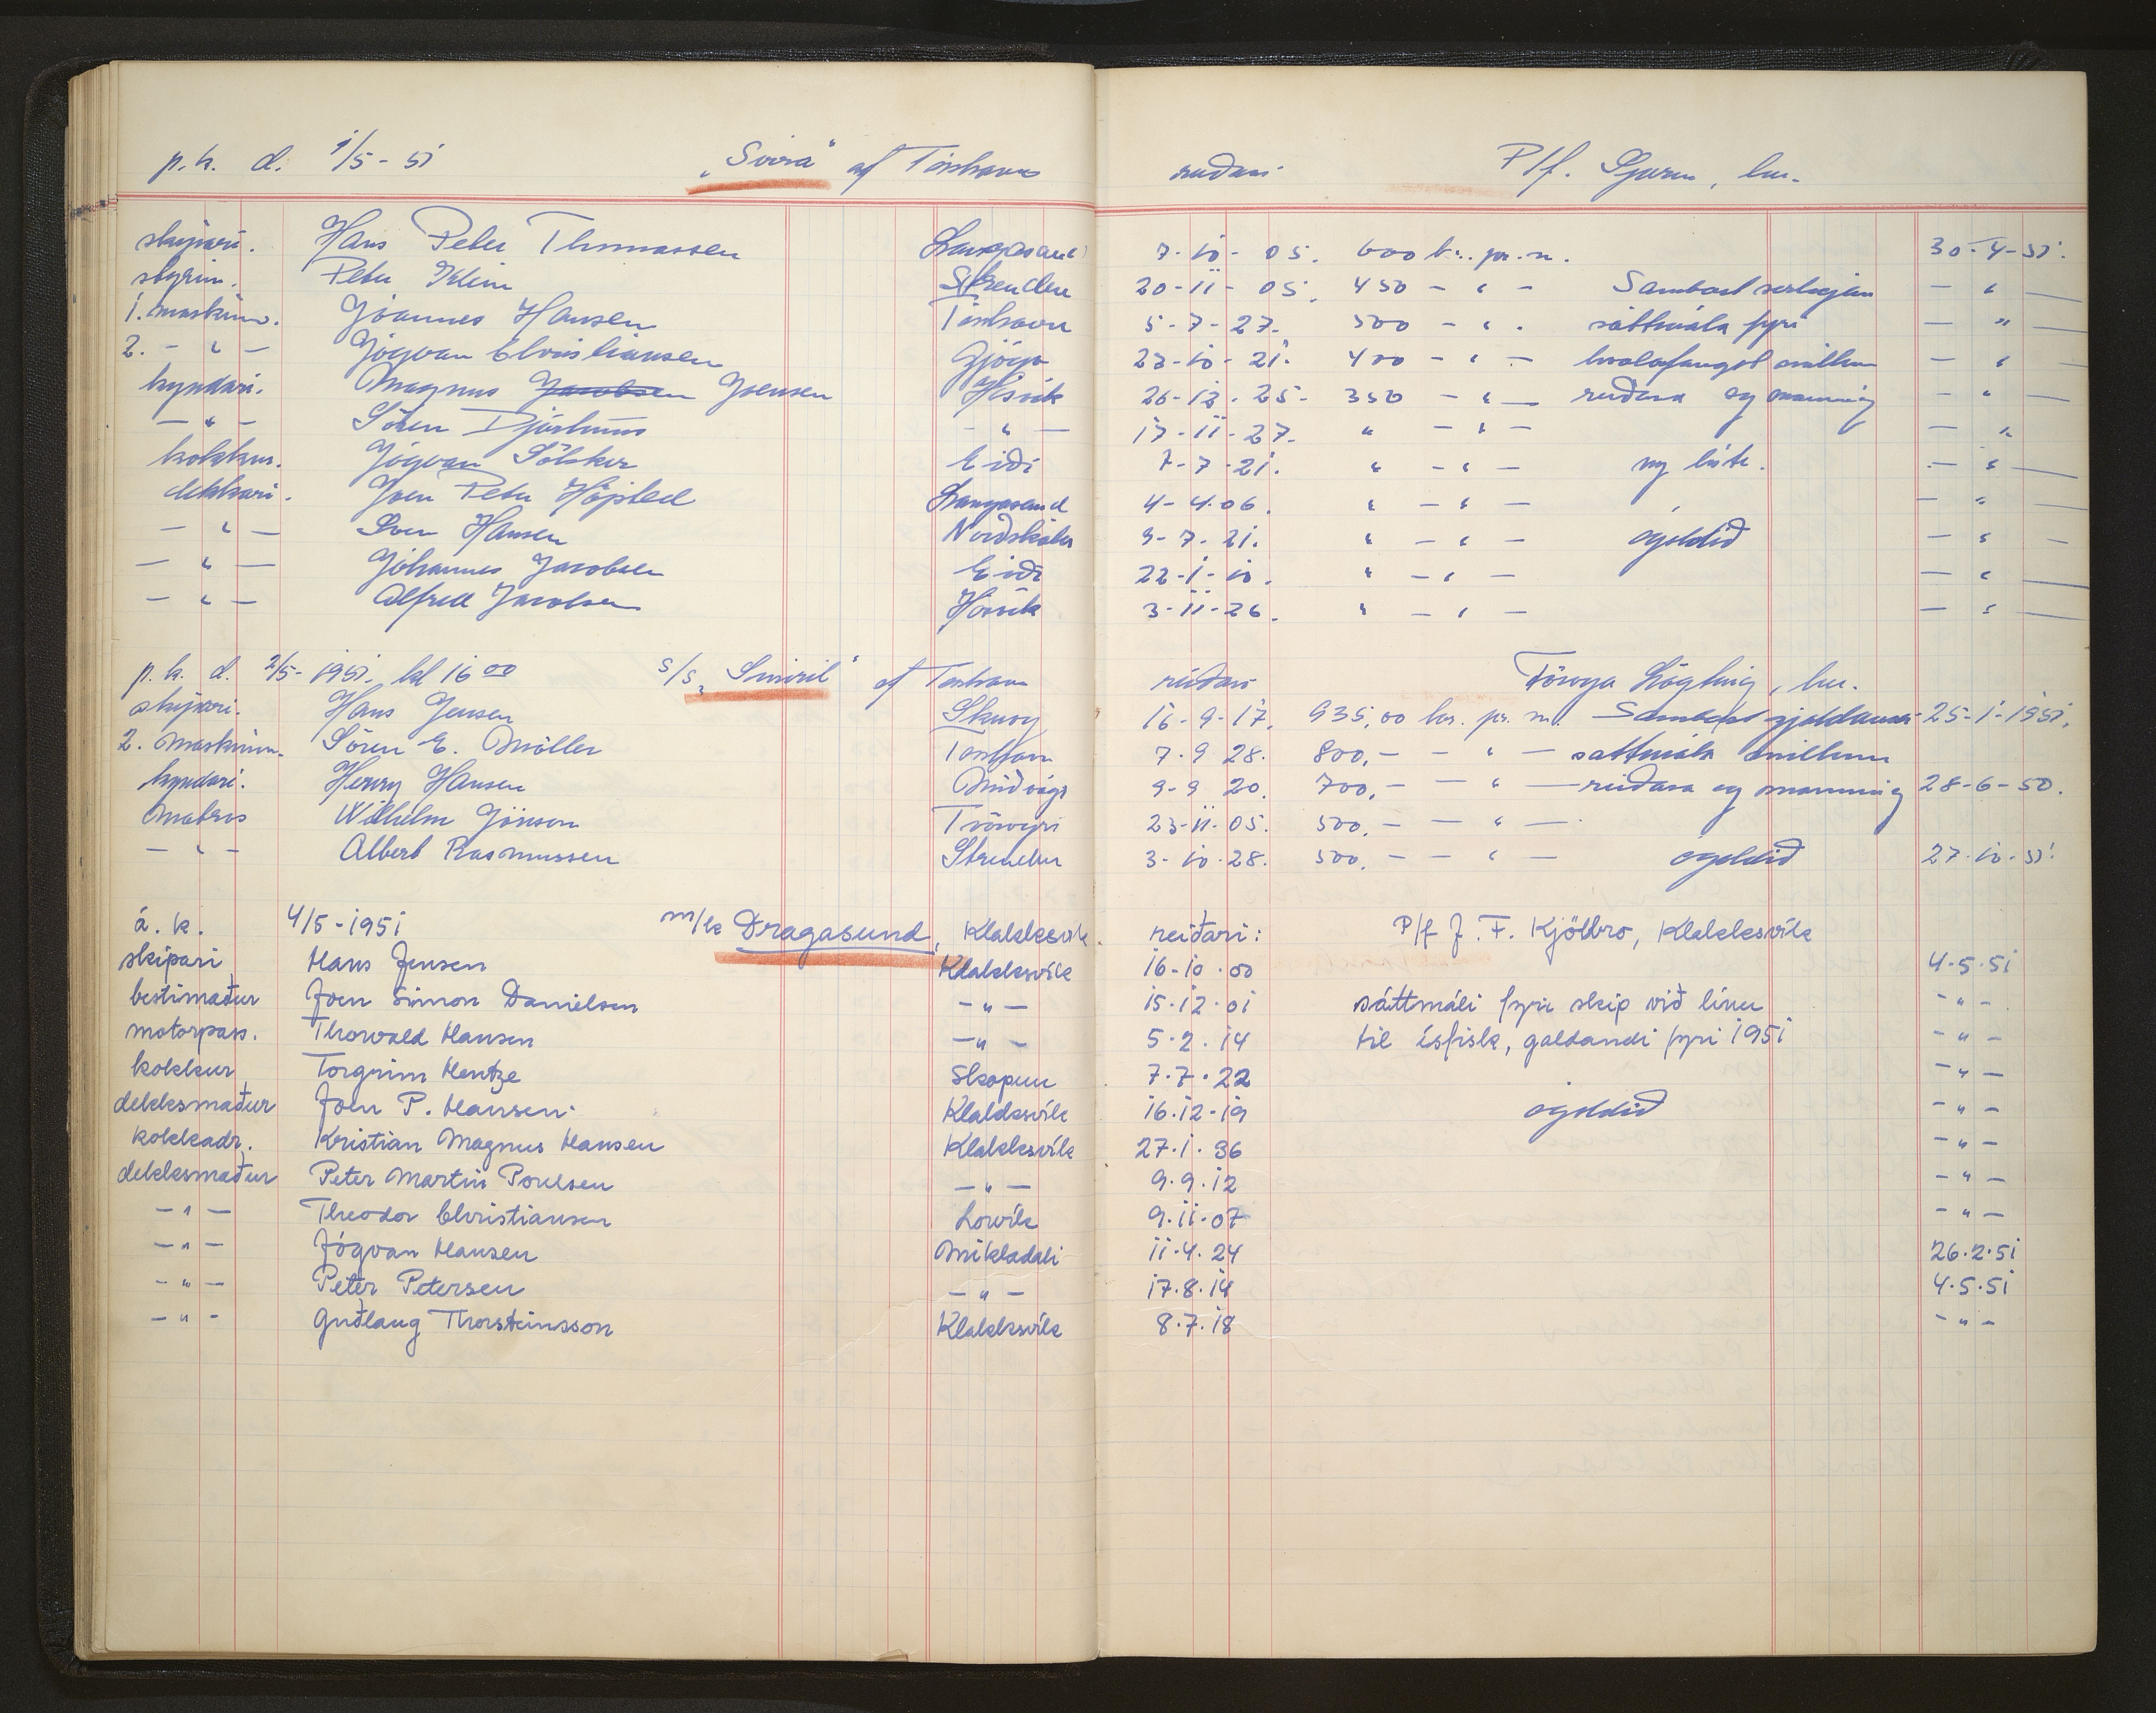 p. k. d. 1/5 - 51 „Svörá“ af Tórshavn reiðari P/f. Sperm, her.
skipari. Hans Peter Thomassen Langasand 7-10-05. 600 kr. pr. m. 30-4-51.
styrim. Peter Klein Strendur 20-11-05. 450 - " - Sambært serligum - " -
1. maskinm. Jóannes Hansen Tórshavn 5-7-27. 500 - " - sáttmála fyri - " -
2. - " - Jógvan Christiansen Gjógv 23-10-21. 400 - " - hvalafangst millum - " -
kyndari. Magnus Jacobsen Joensen Hósvík 26-12-25. 350 - " - reiðara og manning - " -
- " - Sören Djurhuus - " - 17-11-27. " - " - - " -
kokkur. Jógvan Sólsker Eiði 7-7-21. " - " - - " -
dekkari. Joen Peter Højsted Langasand 4-4-06. " - " - - " -
- " - Sven Hansen Norðskála 9-7-21. " - " - ógoldið - " -
- " - Jóhannes Jacobsen Eiði 22-1-10. " - " - - " -
- " - Alfred Jacobsen Hósvík 3-11-26. " - " - - " -
p. k. d. 2/5-1951. kl 16 00 s/s „Smiril“ af Tórshavn reiðari Föroya Lögting, her.
skipari. Hans Jensen Skuoy 16-9-17. 935,00 kr. pr. m. Sambært gjeldandi 25-1-1951.
2. Maskinm. Sören E. Möller Tórshavn 7-9 28. 800,- - " - sáttmála millum
kyndari. Henry Hansen Miðvági 9-9 20. 700,- - " - reiðara og manning 28-6-50.
Matros Wilhelm Jönson Tvöroyri 23-11-05. 500,- - " -
- " - Albert Rasmussen Strendur 3-10-28. 500,- - " - ógoldið 27-10-51.
á. k. 4/5-1951 m/k Dragasund, Klakksvík. reiðari: P/f J. F. Kjölbro, Klakksvík
skipari Hans Jensen Klakksvík 16-10-00 4.5.51
bestimaður Joen Simon Danielsen - " - 15.12.01 sáttmáli fyri skip við línu - " -
motorpass. Thorvald Hansen - " - 5.2.14 til ísfisk, galdandi fyri 1951 - " -
kokkur Torgrim Hentze Skopun 7.7.22 - " -
dekksmaður Joen P. Hansen Klakksvík 16.12.19 ógoldið - " -
kokkadr. Kristian Magnus Hansen Klakksvík 27.1.36 - " -
dekksmaður Peter Martin Poulsen - " - 9.9.12 - " -
- " - Theodor Christiansen Lorvík 9.11.07 - " -
- " - Jógvan Hansen Mikladali 11.4.24 26.2.51
- " - Peter Petersen - " - 17.8.14 4.5.51
- " - Guðlaug Thorsteinsson Klakksvík 8.7.18 - " -